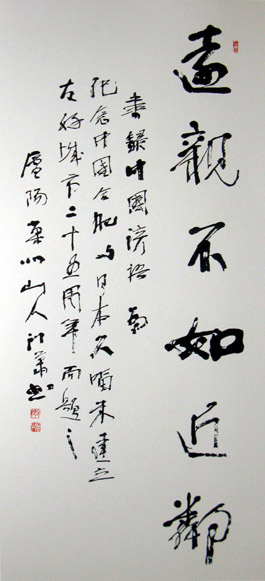 遠親不如近鄰
書録中國諺語
紀念中國合肥与日本久留米建立
友好城市二十五周年而題之
廬陽 山人